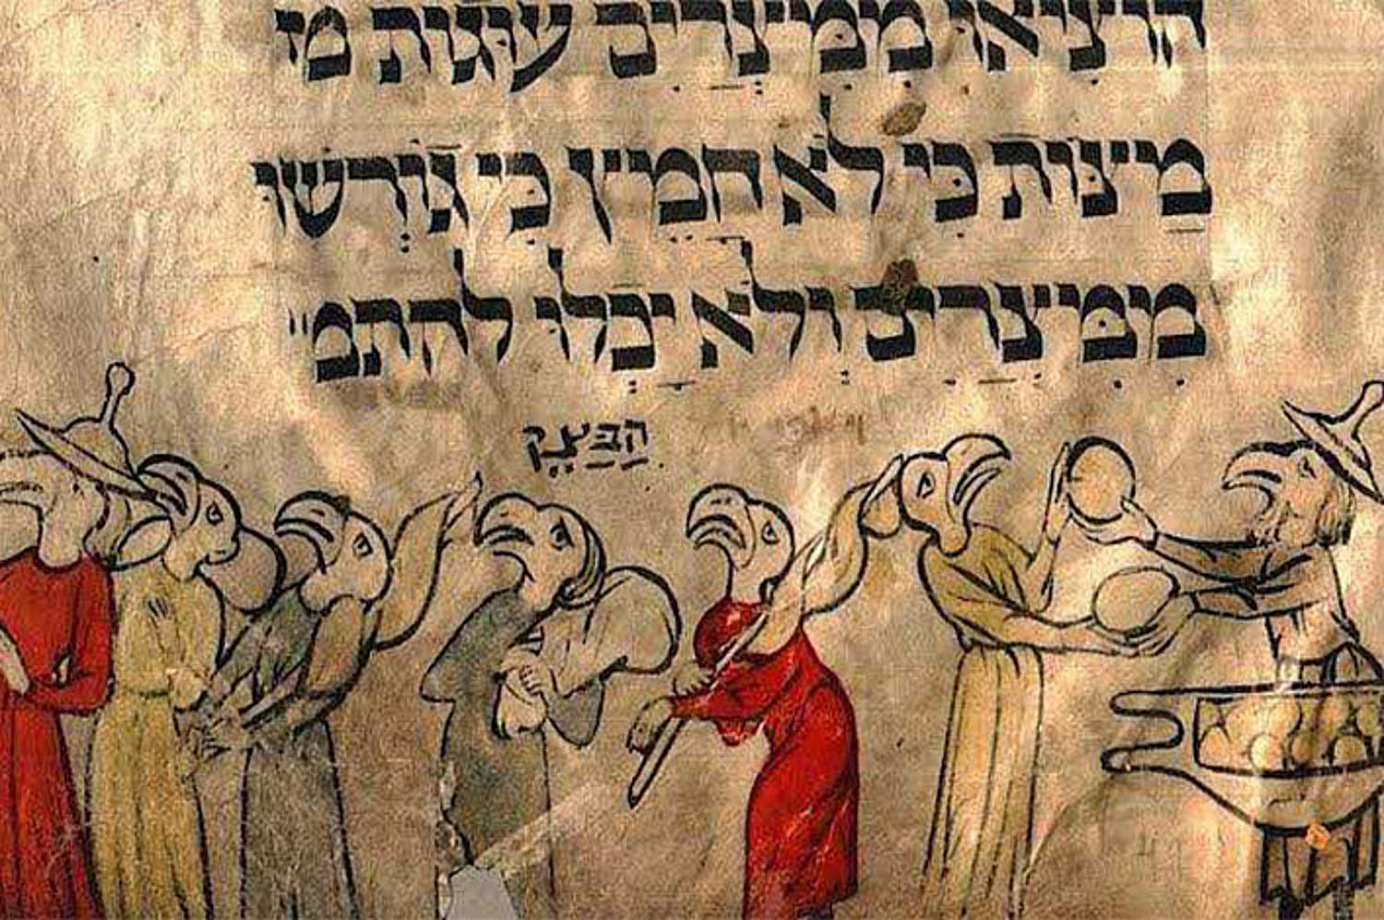 הוציאו ממיצרים עוגות
מיצות כי לא חמיץ כי גורשו
ממיצרים ולא יכלו להתמ"
הבצק